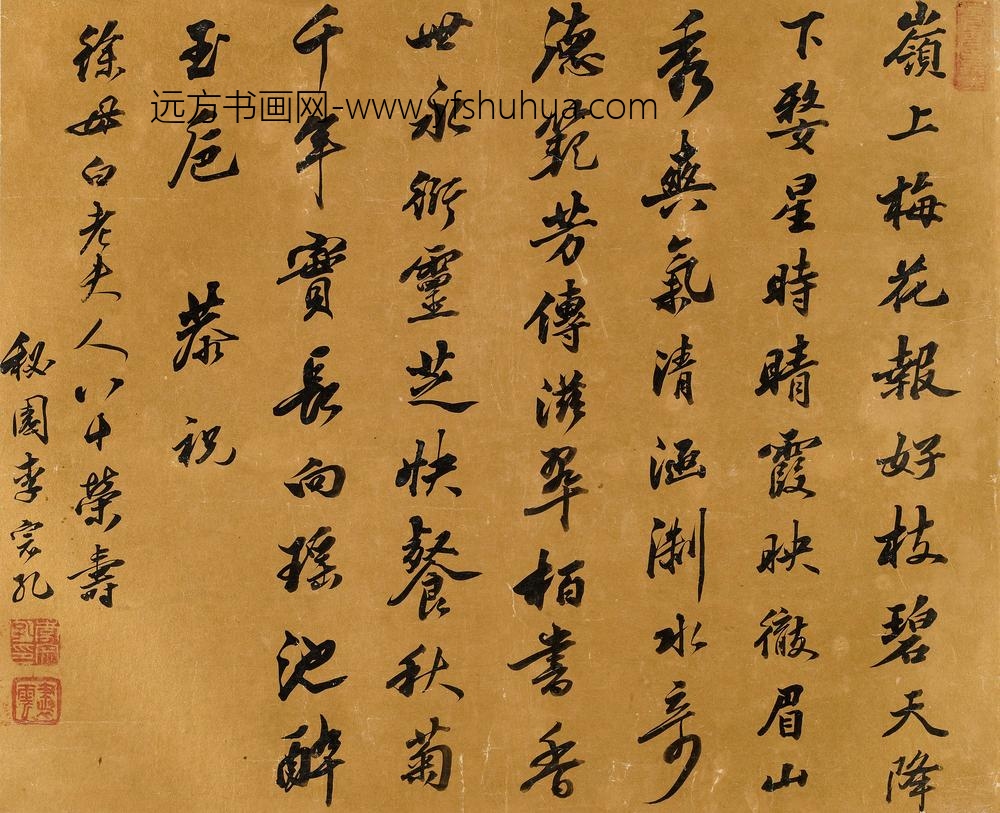 嶺上梅花報好枝碧天降
下婺星時晴霞映徹眉山
秀爽氣清涵淛水奇
德範芳傳滋翠栢書香
世永衍靈芝快餐秋菊
千年實長向瑤池醉
玉巵 恭祝
徐母白老夫人八十榮壽
秘園李宗孔
远方书画网-www.yfshuhua.com